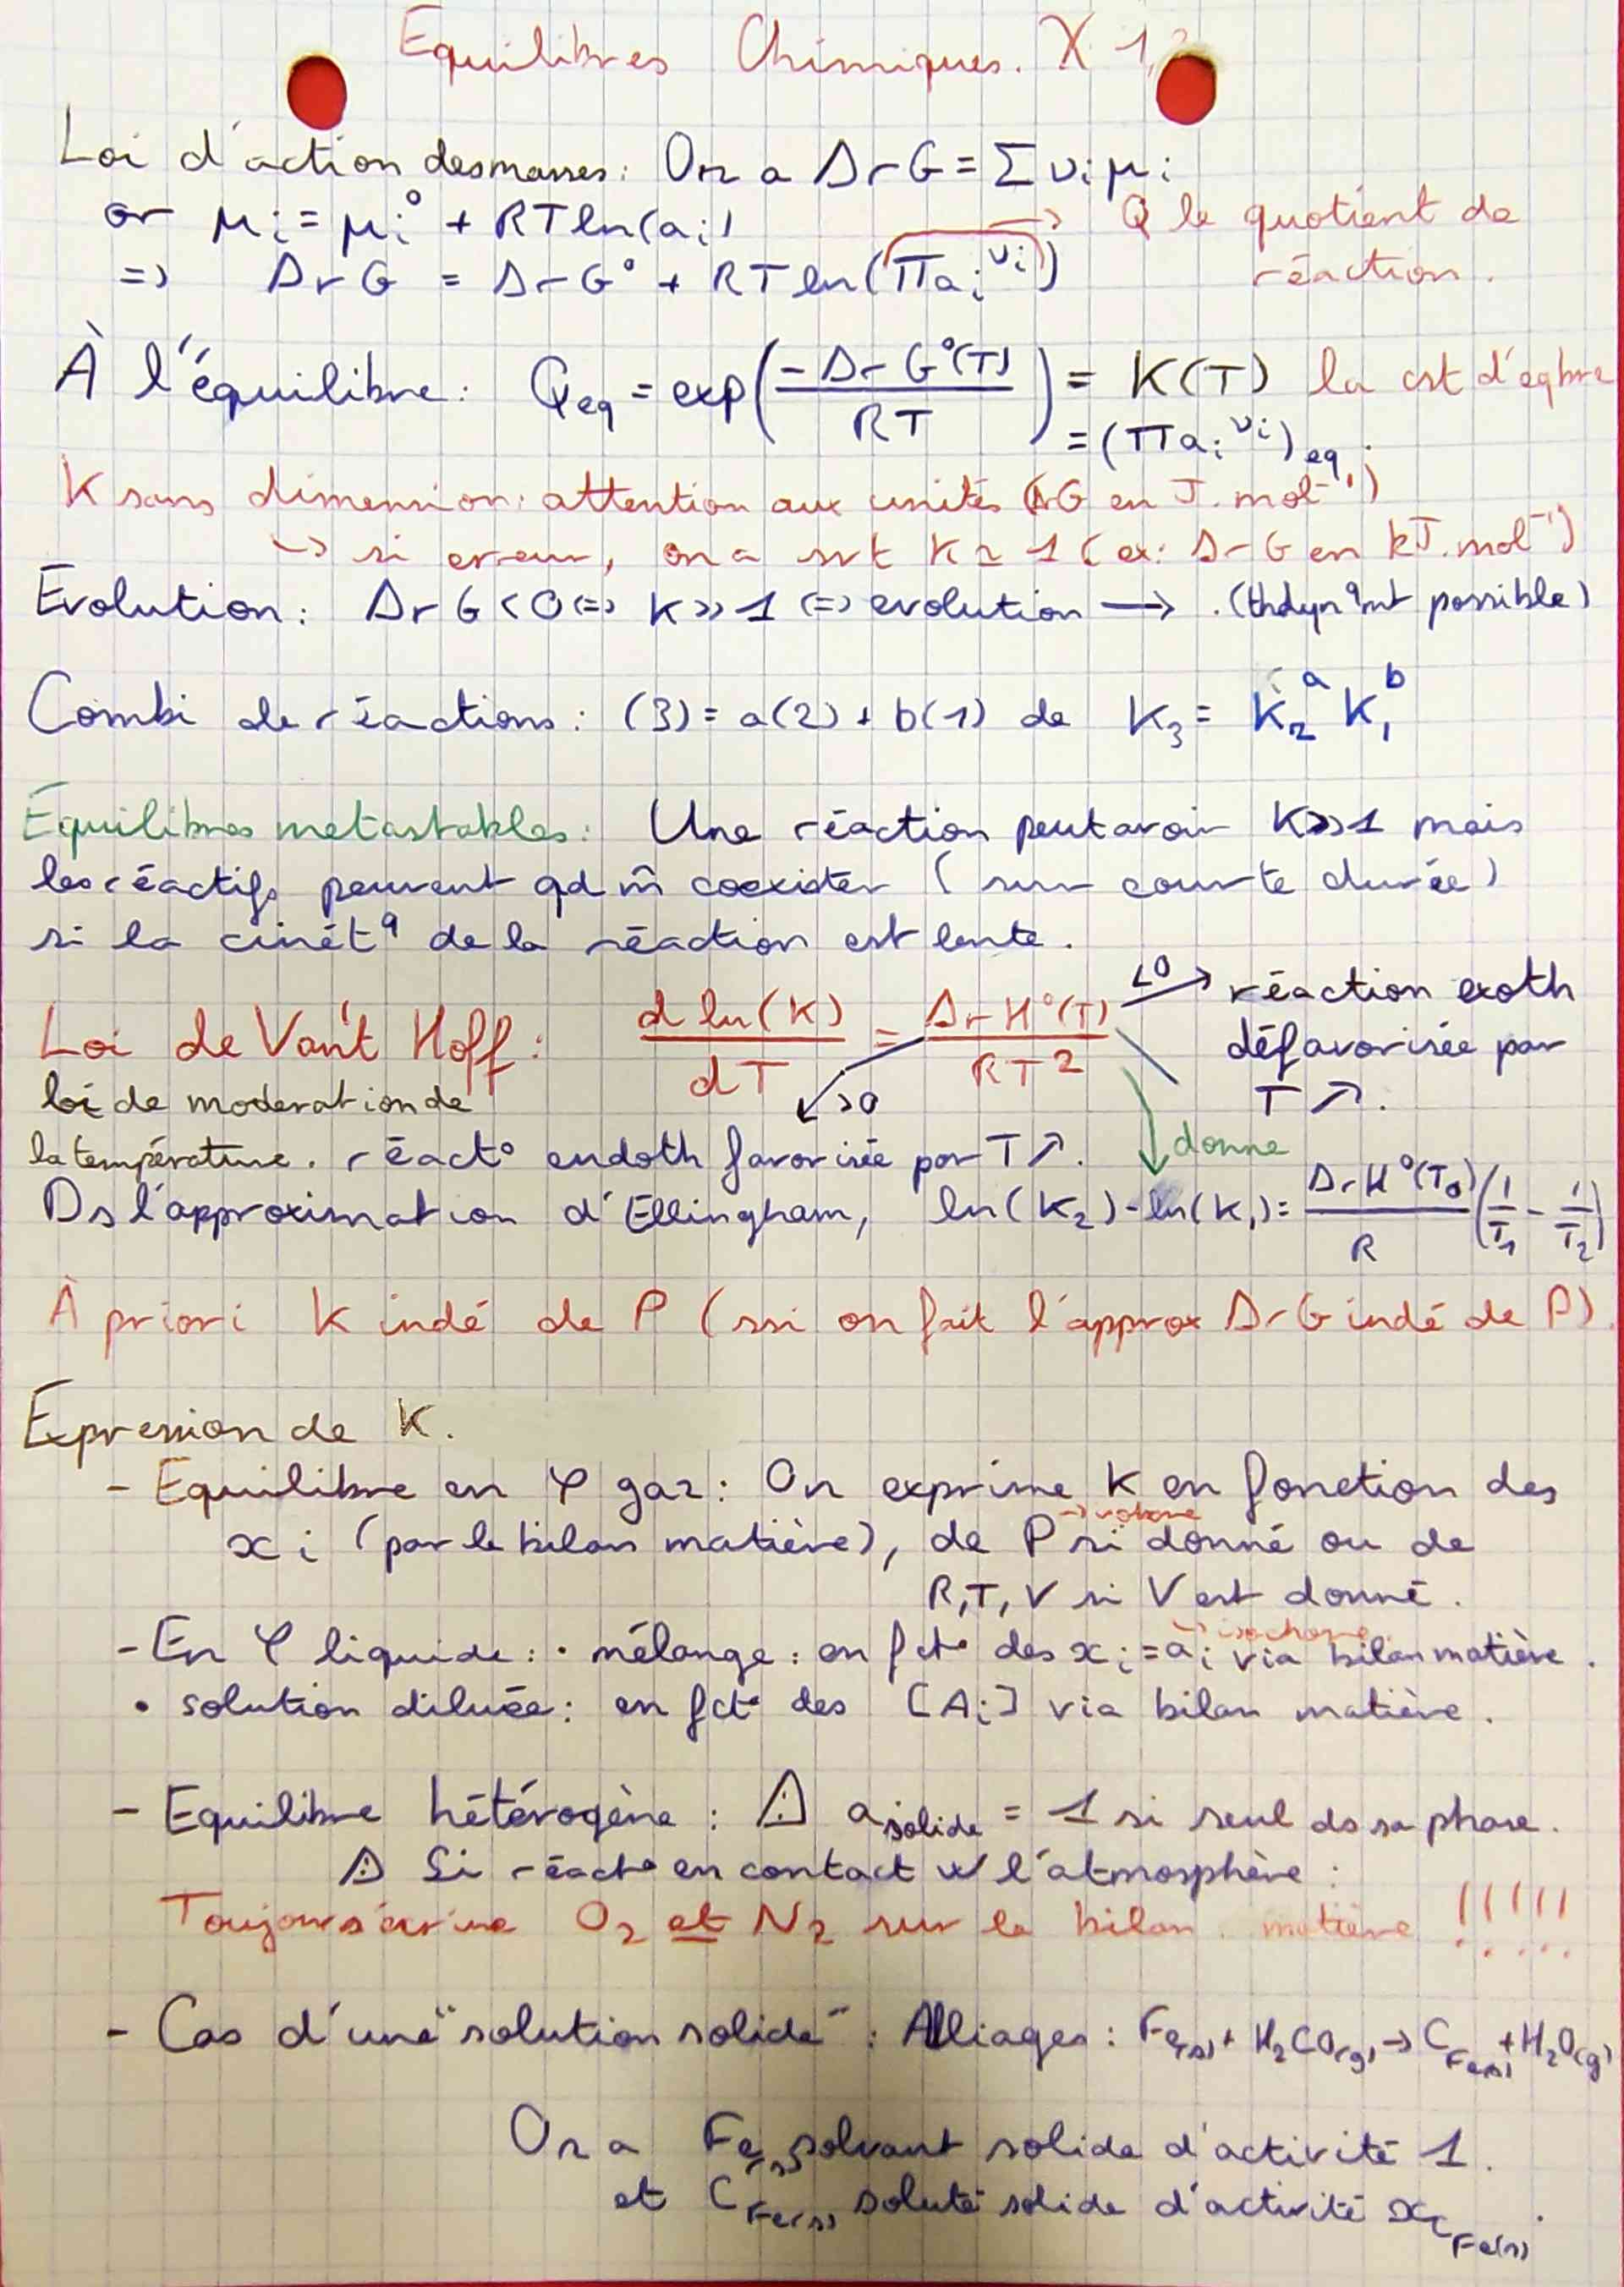 Equilibres Chimiques. X 1,2
Loi d'action des masses : On a ΔrG = Σ νi μi
or μi = μi° + RT ln(ai)
→ Q le quotient de réaction.
=> ΔrG = ΔrG° + RT ln(Πai^νi)
À l'équilibre : Qeq = exp(-ΔrG°(T) / RT) = K(T) la cst d'eqbre
= (Πai^νi)eq.
K sans dimension : attention aux unités (ΔrG en J.mol⁻¹)
↳ si erreur, on a svt K ≃ 1 (ex: ΔrG en kJ.mol⁻¹)
Evolution : ΔrG < 0 <=> K >> 1 <=> evolution → . (thdynqmt possible)
Combi de réactions : (3) = a(2) + b(1) de K₃ = K₂^a K₁^b
Equilibres metastables : Une réaction peut avoir K>>1 mais
les réactifs peuvent qd m̂ coexister (sur courte durée)
si la cinétq de la réaction est lente.
Loi de Van't Hoff : d ln(K) / dT = ΔrH°(T) / RT²
<0 → réaction exoth
défavorisée par
T ↗.
loi de moderation de
la température.
>0 réact° endoth favorisée par T ↗.
donne
Ds l'approximation d'Ellingham, ln(K₂) - ln(K₁) = ΔrH°(T₀) / R (1/T₁ - 1/T₂)
À priori K indé de P (ssi on fait l'approx ΔrG indé de P).
Expression de K.
- Equilibre en φ gaz : On exprime K en fonction des
xi (par le bilan matière), de P si donné ou de
R,T,V si V est donné.
→ isochore.
- En φ liquide : • mélange : en fct° des xi = ai via bilan matière.
• solution diluée : en fct° des [Ai] via bilan matière.
- Equilibre hétérogène : ⚠ a solide = 1 si seul ds sa phase.
⚠ Si réact° en contact w/ l'atmosphère :
Toujours écrire O₂ et N₂ sur le bilan matière !!!!!
- Cas d'une "solution solide" : Alliages : Fe(s) + H₂CO(g) → C Fe(s) + H₂O(g)
On a Fe(s) solvant solide d'activité 1.
et C Fe(s) soluté solide d'activité x C Fe(s).